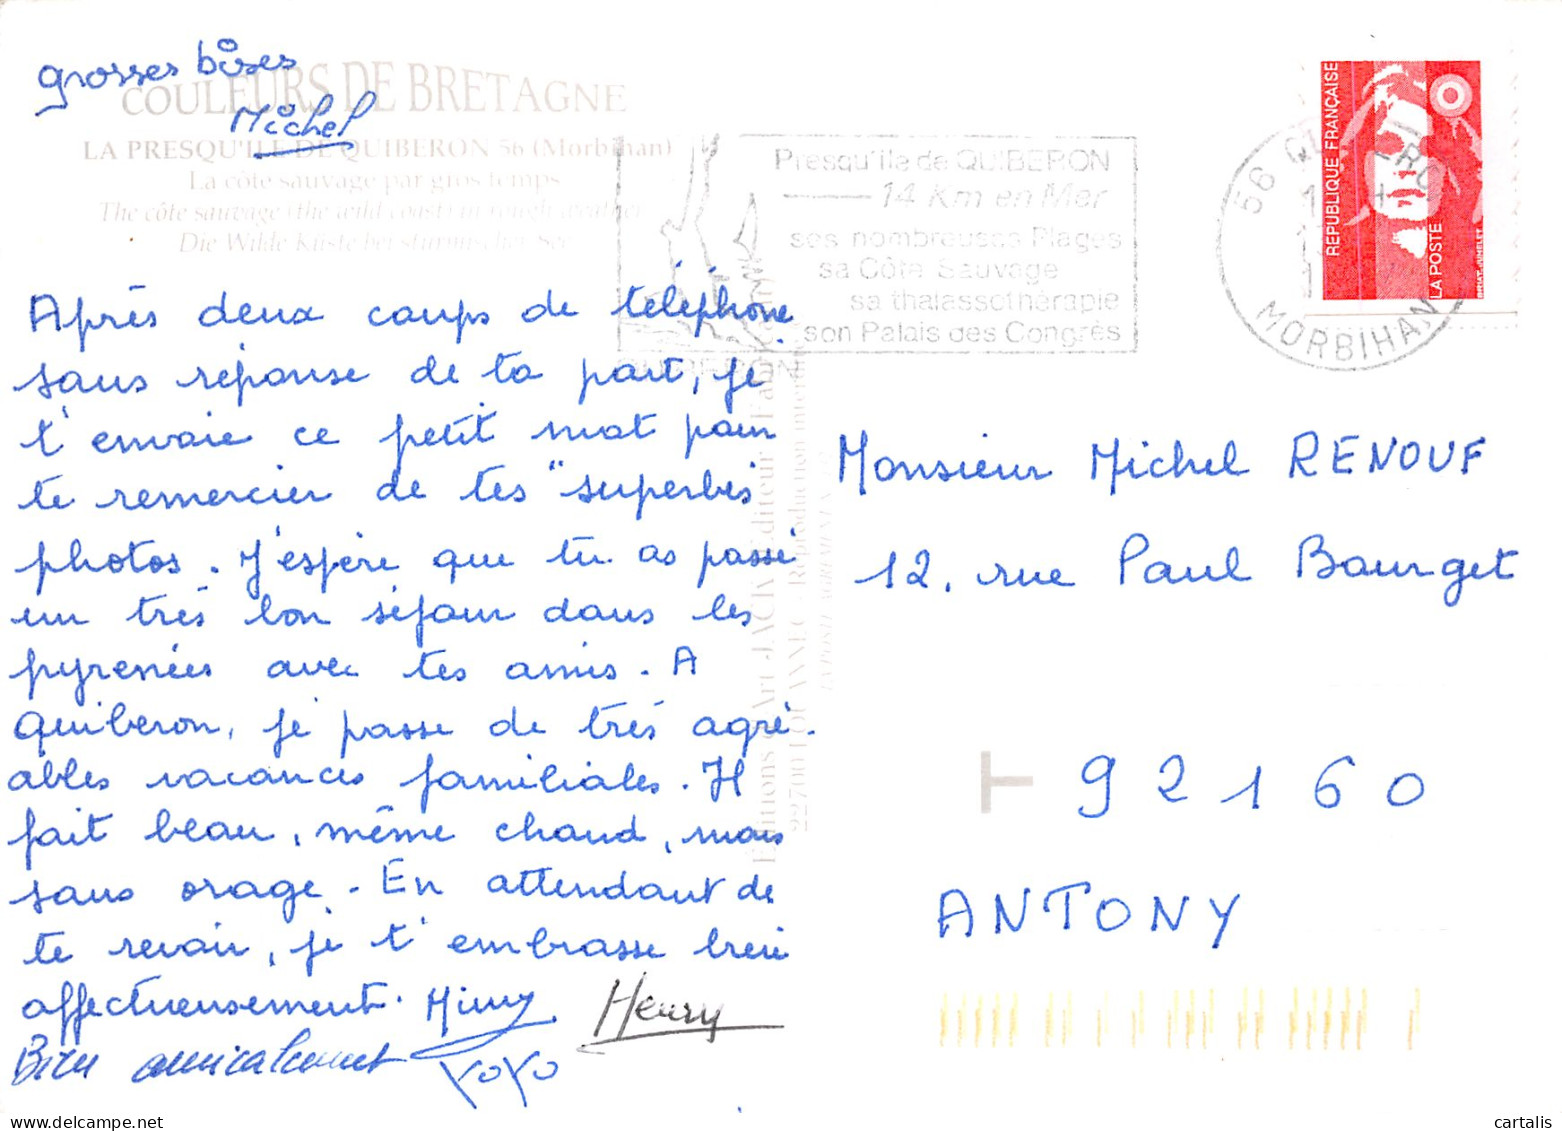 grosses bises
Michel
COULEURS DE BRETAGNE
LA PRESQU'ILE DE QUIBERON 56 (Morbihan)
La côte sauvage par gros temps
The côte sauvage (the wild coast) in rough weather
Die Wilde Küste bei stürmischer See
Après deux coups de téléphone
sans réponse de ta part, je
t'envoie ce petit mot pour
te remercier de tes "superbes
photos. J'espère que tu as passé
un très bon séjour dans les
pyrenées avec tes amis. A
Quiberon, je passe de très agré-
ables vacances familiales. Il
fait beau, même chaud, mais
sans orage. En attendant de
te revoir, je t'embrasse bien
affectueusement. Mimy Henry
Bien amicalement YOYO
Presqu'ile de QUIBERON
14 Km en Mer
ses nombreuses Plages
sa Côte Sauvage
sa thalassothérapie
son Palais des Congrès
QUIBERON
56 QUIBERON
MORBIHAN
REPUBLIQUE FRANÇAISE
LA POSTE
BRIAT-JUMELET
Editions d'Art JACK
22700 LOUANNEC - Reproduction interdite
Monsieur Michel RENOUF
12, rue Paul Bourget
T 92160
ANTONY
cartalis